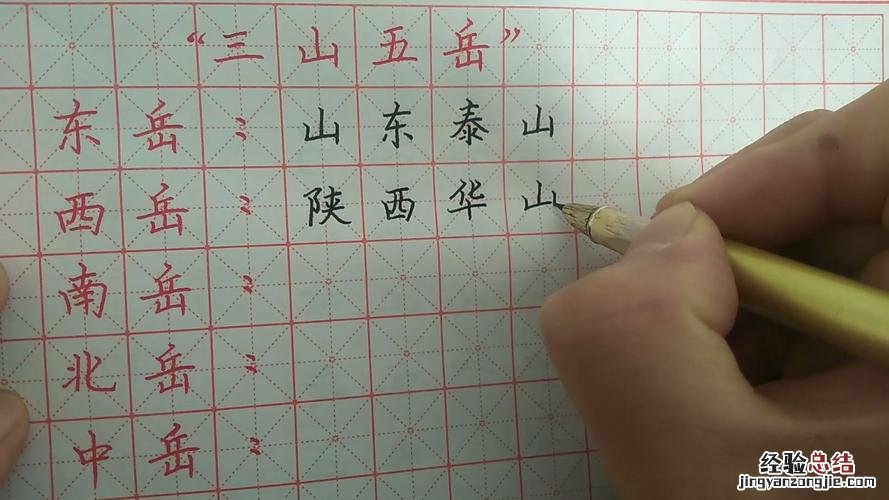 “三山五岳”
东岳：山东泰山
西岳：陕西华山
南岳：
北岳：
中岳：
经验总结
jingyanzongjie.com